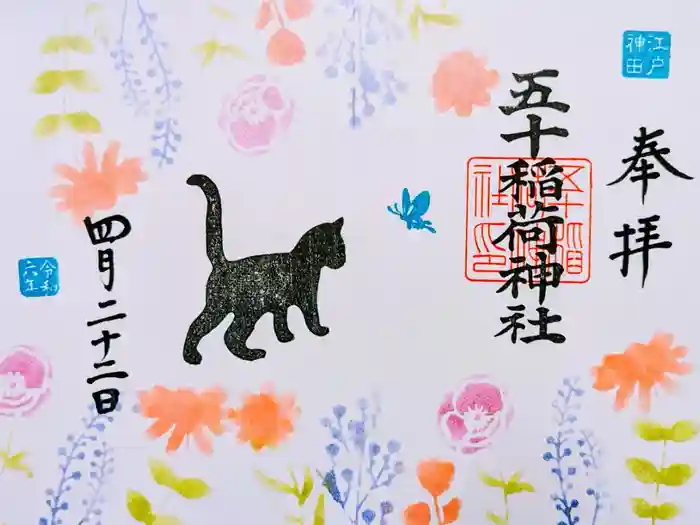 江戸
神田
奉拝
五十稲荷神社
四月二十二日
令和
六年